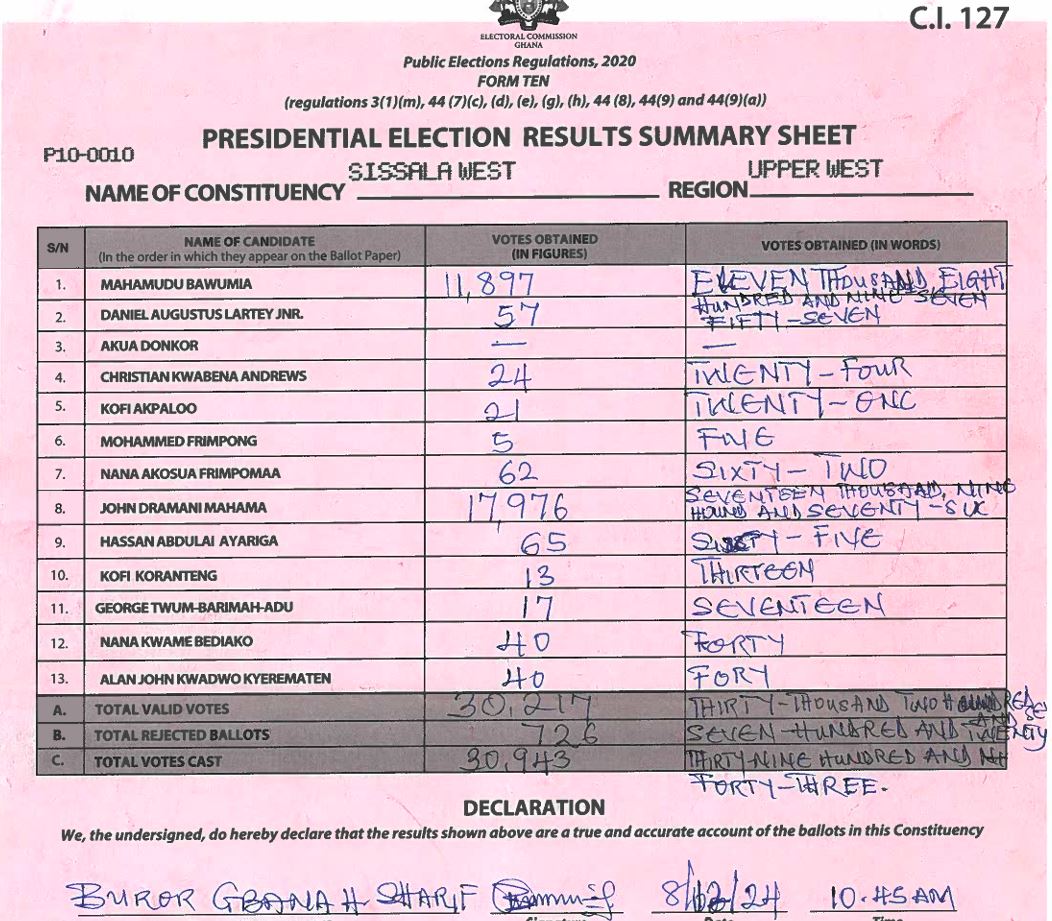 C.I. 127
ELECTORAL COMMISSION
GHANA
Public Elections Regulations, 2020
FORM TEN
(regulations 3(1)(m), 44 (7)(c), (d), (e), (g), (h), 44 (8), 44(9) and 44(9)(a))
PRESIDENTIAL ELECTION RESULTS SUMMARY SHEET
P10-0010
NAME OF CONSTITUENCY SISSALA WEST REGION UPPER WEST
S/N NAME OF CANDIDATE (In the order in which they appear on the Ballot Paper) VOTES OBTAINED (IN FIGURES) VOTES OBTAINED (IN WORDS)
1. MAHAMUDU BAWUMIA 11,897 ELEVEN THOUSAND, EIGHT
HUNDRED AND NINE SEVEN
2. DANIEL AUGUSTUS LARTEY JNR. 57 FIFTY-SEVEN
3. AKUA DONKOR — —
4. CHRISTIAN KWABENA ANDREWS 24 TWENTY-FOUR
5. KOFI AKPALOO 21 TWENTY-ONE
6. MOHAMMED FRIMPONG 5 FIVE
7. NANA AKOSUA FRIMPOMAA 62 SIXTY-TWO
8. JOHN DRAMANI MAHAMA 17,976 SEVENTEEN THOUSAND, NINE
AND SEVENTY-SIX
9. HASSAN ABDULAI AYARIGA 65 SIXTY-FIVE
10. KOFI KORANTENG 13 THIRTEEN
11. GEORGE TWUM-BARIMAH-ADU 17 SEVENTEEN
12. NANA KWAME BEDIAKO 40 FORTY
13. ALAN JOHN KWADWO KYEREMATEN 40 FORY
A. TOTAL VALID VOTES 30,217 THIRTY-THOUSAND TWO
AND SE
B. TOTAL REJECTED BALLOTS 726 SEVEN-HUNDRED AND TWENTY
C. TOTAL VOTES CAST 30,943 THIRTY-NINE HUNDRED AND
FORTY-THREE.
DECLARATION
We, the undersigned, do hereby declare that the results shown above are a true and accurate account of the ballots in this Constituency
SHARIF 8/12/24 10.45AM
Signature Date Time